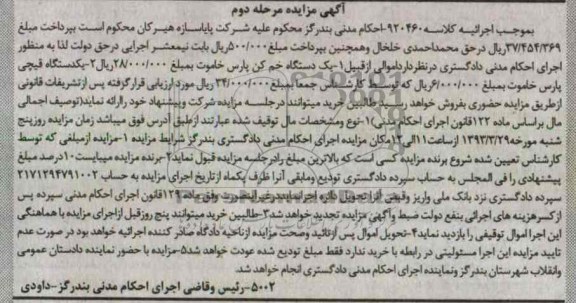 آگهی مزایده مرحله دوم
بموجب اجرائیه کلاسه ۹۲۰۴۶۰-احکام مدنی بندرگز محکوم علیه شرکت پایاسازه هیرکان محکوم است بپرداخت مبلغ
۳۷/۴۵۴/۳۶۹ریال درحق محمداحمدی خلخال وهمچنین بپرداخت مبلغ۵۰۰/۰۰۰ریال بابت نیمعشر اجرایی درحق دولت لذا به منظور
اجرای احکام مدنی دادگستری درنظرداردااموالی ازقبیل۱-یک دستگاه خم کن پارس خاموت بمبلغ ۲۸/۰۰۰/۰۰۰ریال۲-یکدستگاه قیچی
پارس خاموت بمبلغ ۶/۰۰۰/۰۰۰ریال که توسط کارشناس جمعا بمبلغ ۳۴/۰۰۰/۰۰۰ ریال مورد ارزیابی قرارگرفته پس ازتشریفات قانونی
ازطریق مزایده حضوری بفروش خواهد رسید طالبین خرید میتوانند درجلسه مزایده شرکت وپیشنهاد خود راارائه نماید(توصیف اجمالی
مال براساس ماده ۱۲۲قانون اجرای احکام مدنی)۱-نوع ومشخصات مال توقیف شده عبارتند ازطبق آدرس فوق میباشد زمان مزایده روزپنج
شنبه مورخه۱۳۹۳/۳/۲۹ازساعت۱۱الی۱۲مکان مزایده اجرای احکام مدنی دادگستری بندرگز شرایط مزایده ۱-مزایده ازمبلغی که توسط
کارشناس تعیین شده شروع برنده مزایده کسی است که بالاترین مبلغ رادرجلسه مزایده قبول نماید۲-برنده مزایده میبایست۱۰درصد مبلغ
پیشنهادی را فی المجلس به حساب سپرده دادگستری تودیع ومابقی آنرا ظرف یکماه ازتاریخ اجرای مزایده به حساب ۲۱۷۱۲۹۴۷۹۱۰۰۲
سپرده دادگستری نزد بانک ملی واریز وقبض آنرا تحویل دایره اجرا نماید درغیراینصورت وفق ماده ۱۲۹قانون اجرای احکام مدنی سپرده پس
ازکسرهزینه های اجرائی بنفع دولت ضبط وآگهی مزایده تجدید خواهد شد۳-طالبین خرید میتوانند پنج روزقبل ازاجرای مزایده با هماهنگی
این اجرا اموال توقیفی را بازدید نماید۴-تحویل اموال پس ازتائید وصحت مزایده ازناحیه دادگاه صادر کننده اجرائیه خواهد بود در صورت عدم
تایید مزایده این اجرا مسئولیتی در رابطه با خرید ندارد فقط مبلغ تودیع شده عودت خواهد شد۵-مزایده با حضور نماینده دادستان عمومی
وانقلاب شهرستان بندرگز ونماینده اجرای احکام مدنی دادگستری انجام خواهد شد.
۵۰۰۲-رئیس وقاضی اجرای احکام مدنی بندرگز-داودی